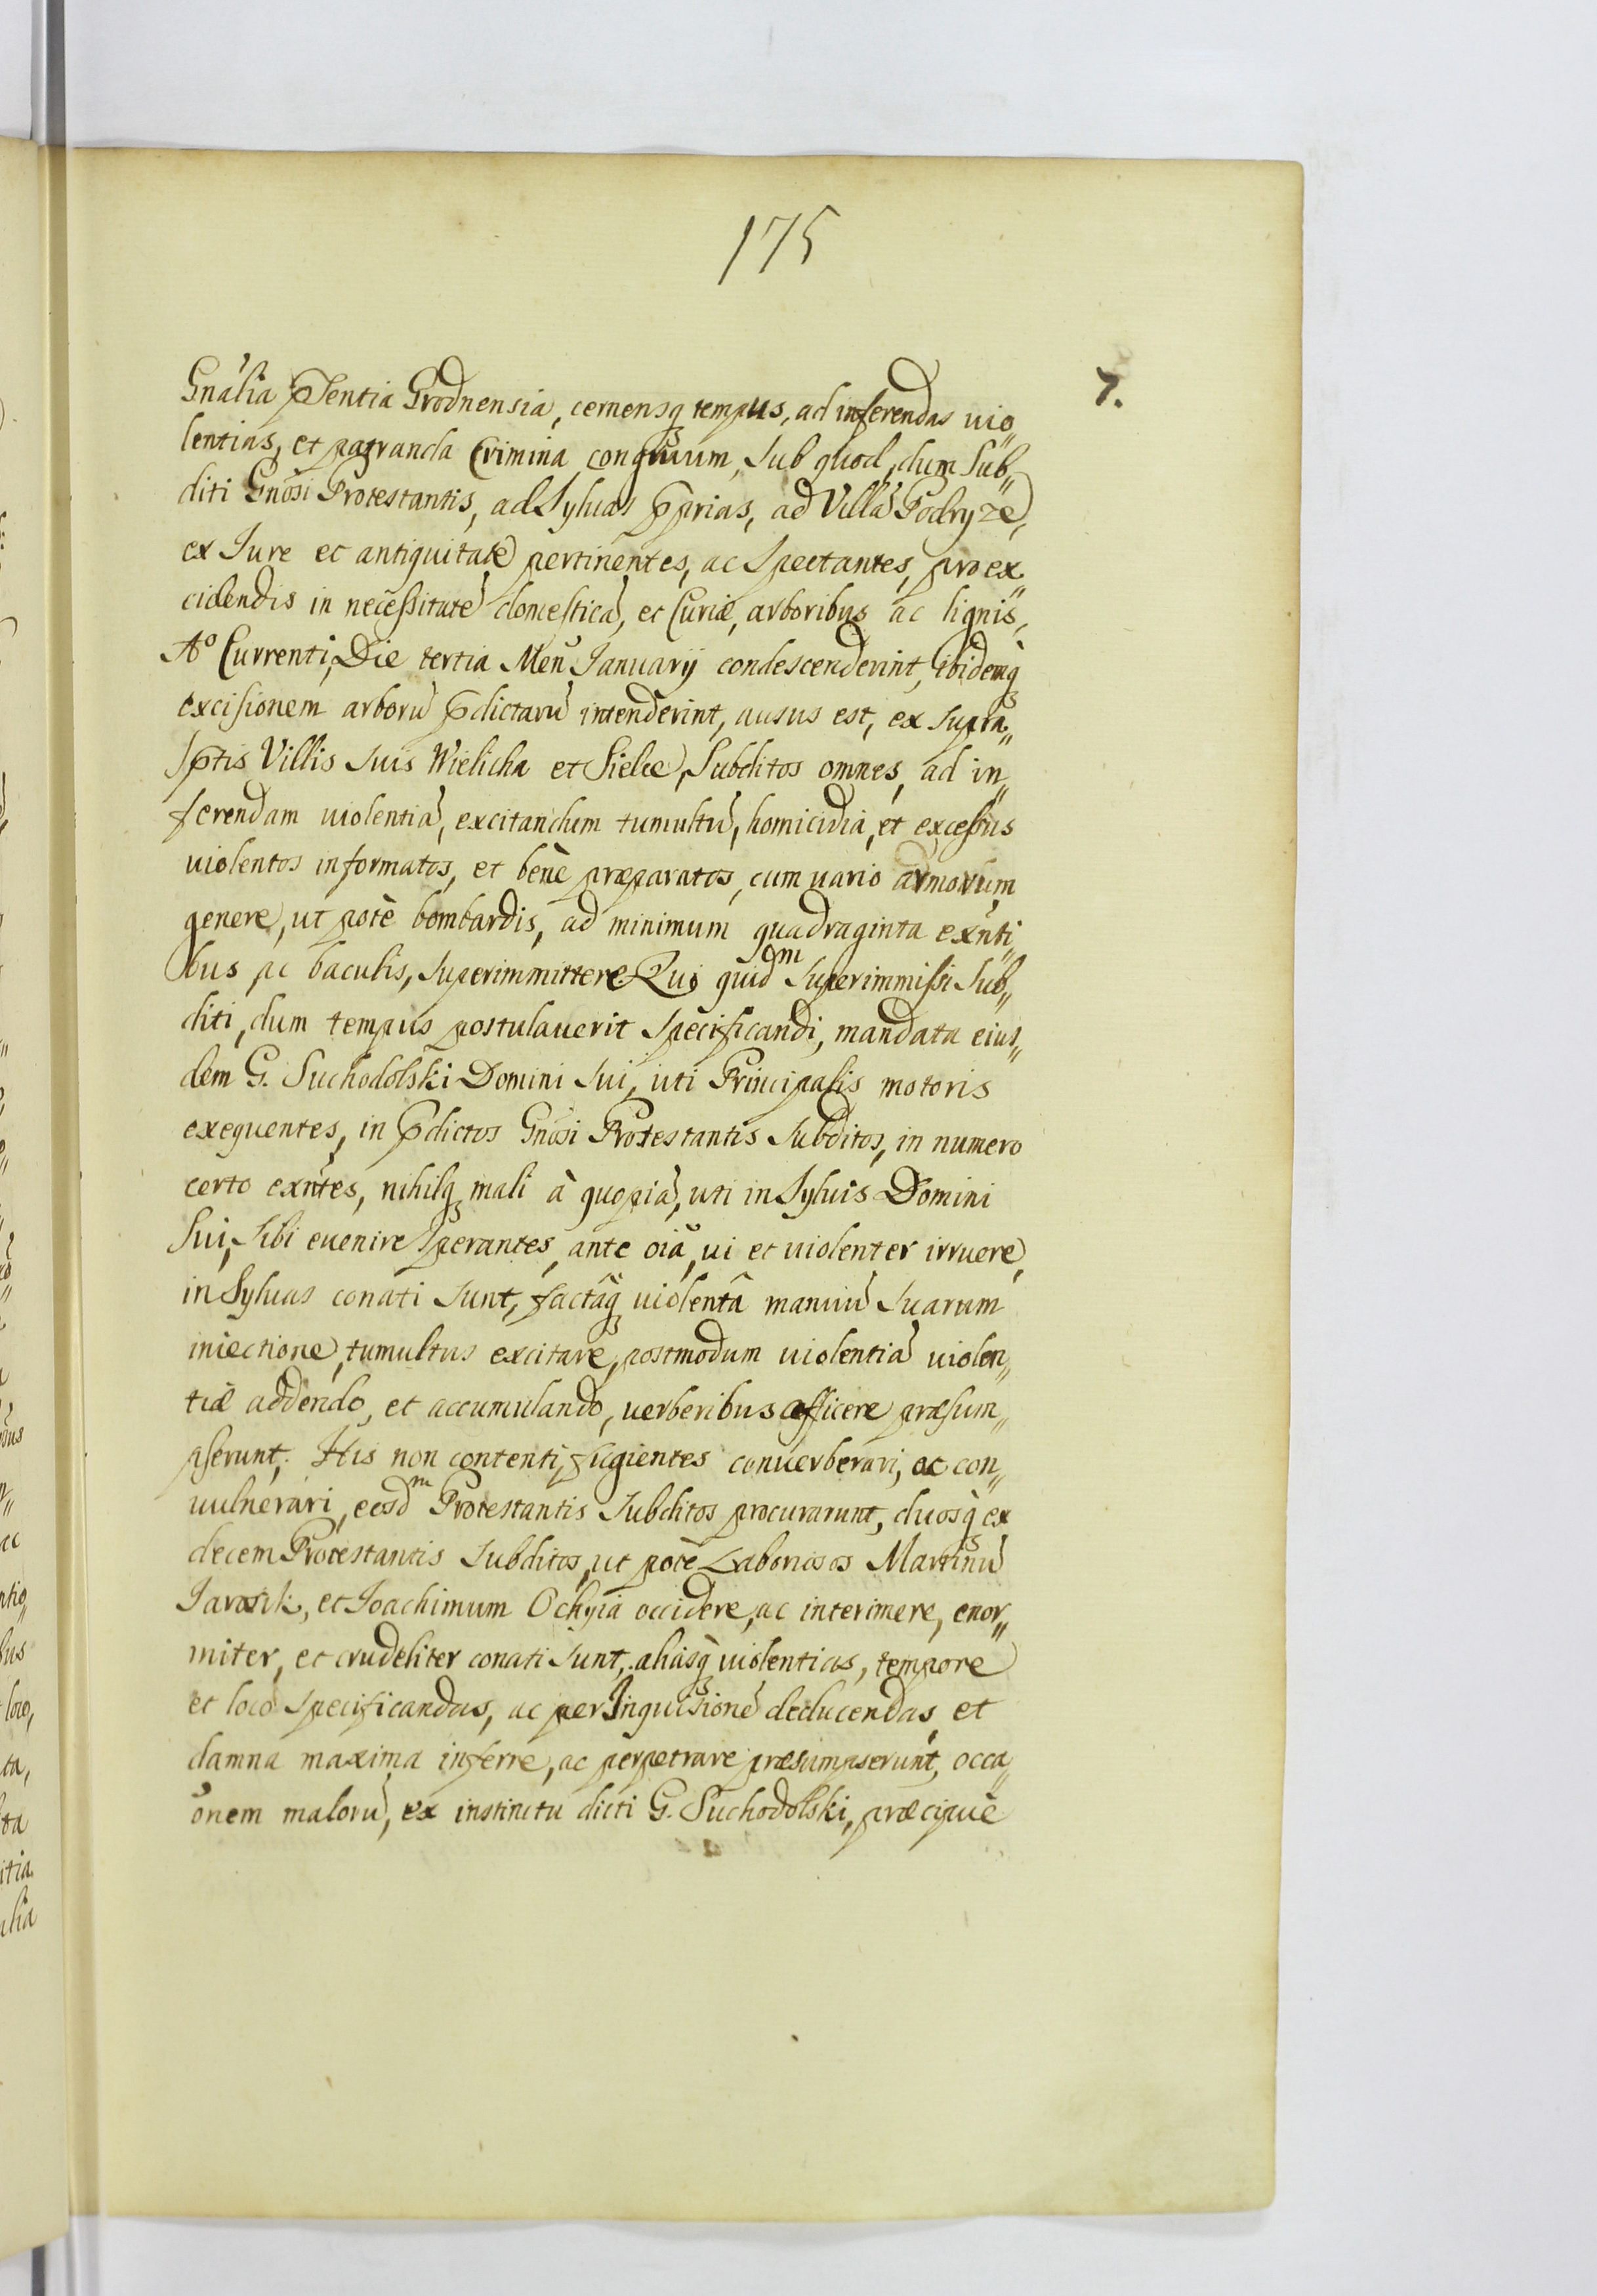 175
7.
Gnãlia p̃sentia Grodnensia, cernensq̃ tempus, ad inferendas uio„
lentias, et patranda Crimina congruum, Sub quod, dum Sub„
diti Gnõsi Protestantis, ad Syluas p̃prias, ad Villã Podryże,
ex Iure et antiquitate pertinentes, ac Spectantes, pro ex„
cidendis in necessitatẽ domesticã, et Curiæ, arboribus ac lignis,
Aº Currenti, Die tertia Meñ Ianuarij condescenderint, ibidemq̃
excisionem arborũ p̃dictarũ intenderint, ausus est, ex supra„
sptis Villis Suis Wielicha et Sielce, Subditos omnes, ad in„
ferendam uiolentiã, excitandum tumultũ, homicidia, et excessus
uiolentos informatos, et benè præparatos, cum uario armorum
genere, ut potè bombardis, ad minimum quadraginta exñti„
bus ac baculis, superimmittere. Qui quidm Superimmissi Sub„
diti, dum tempus postulauerit Specificandi, mandata eius„
dem G. Suchodolski Domini Sui, uti Principalis motoris
exequentes, in p̃dictos Gnõsi Protestantis Subditos, in numero
certo exñtes, nihilq̃ mali à quopiã, uti in Syluis Domini
Sui, Sibi euenire Sperantes, ante oĩa, ui et uiolenter irruere,
in Syluas conati Sunt, factaq̃ uiolentâ manuũ Suarum
iniectione, tumultus excitare, postmodum uiolentiã uiolen„
tiæ addendo, et accumulando, uerberibus afficere præsum„
pserunt. His non contenti, fugientes conuerberari, ac con„
uulnerari, eosdm Protestantis Subditos procurarunt, duosq̃ ex
decem Protestantis Subditos, ut potè Laboriosos Martinũ
Iarosik, et Ioachimum Ochyia occidere, ac interimere, enor„
miter, et crudeliter conati Sunt, aliasq̃ uiolentias, tempore
et loco Specificandas, ac per Inquisitionẽ deducendas, et
damna maxima inferre, ac perpetrare præsumpserunt, occa„
õnem malorũ, ex instinctu dicti G. Suchodolski, præcipuè